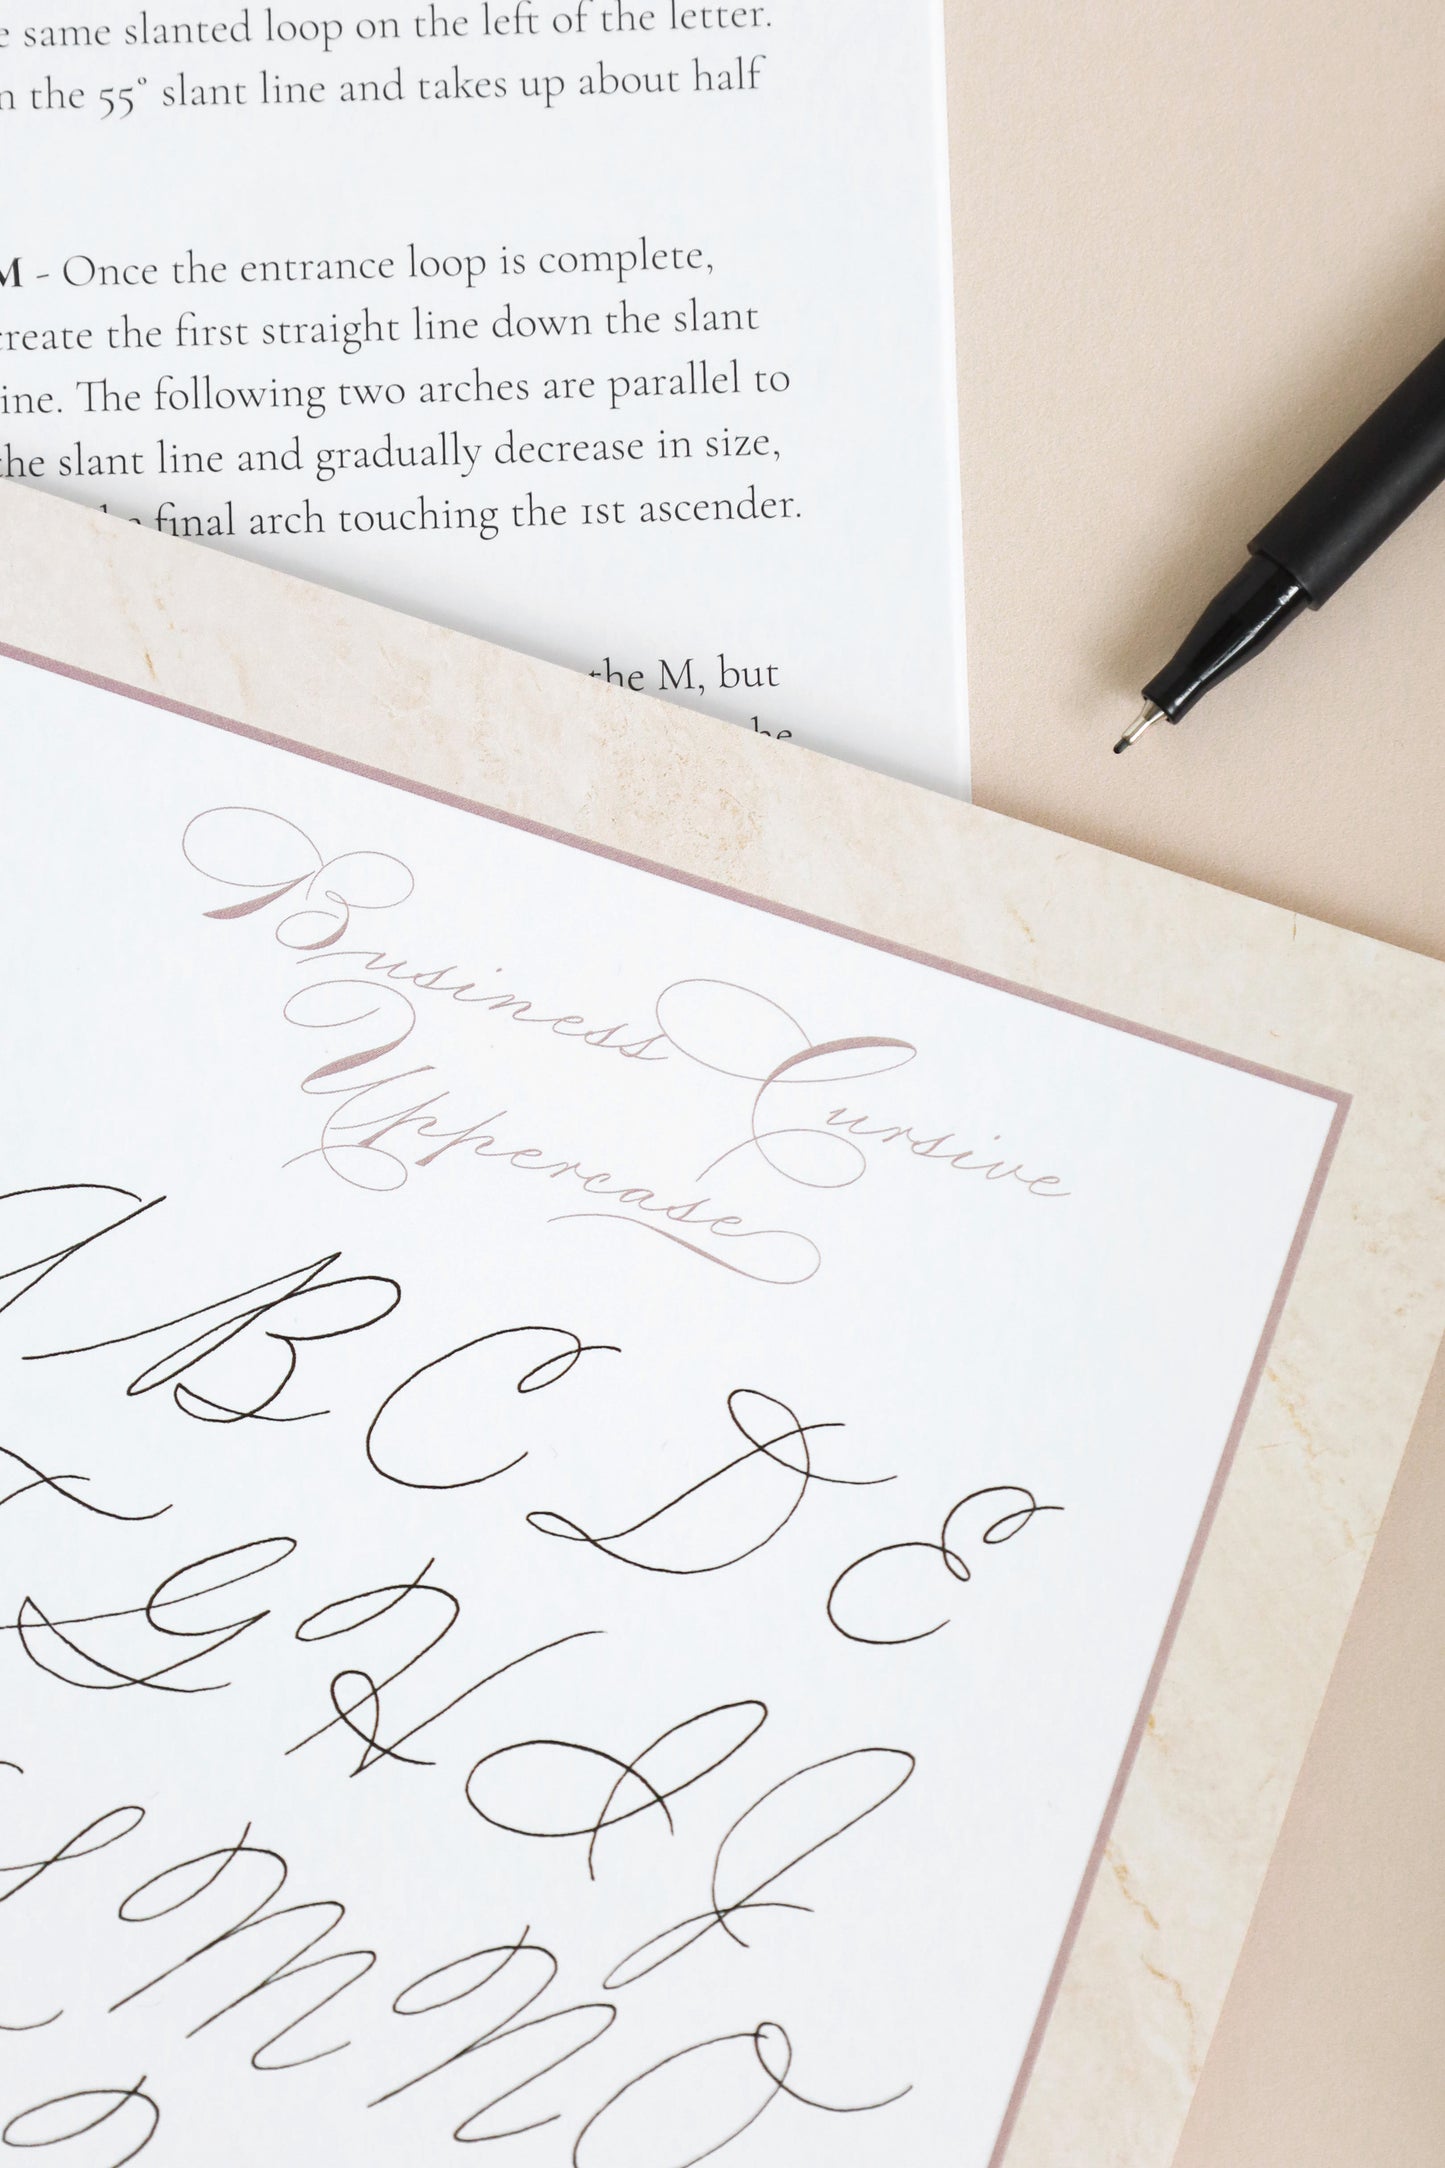 same slanted loop on the left of the letter.
the 55° slant line and takes up about half
M - Once the entrance loop is complete,
create the first straight line down the slant
line. The following two arches are parallel to
the slant line and gradually decrease in size,
final arch touching the 1st ascender.
the M, but
he
Business Cursive
Uppercase
A B C D E
F G H I J
L M N O